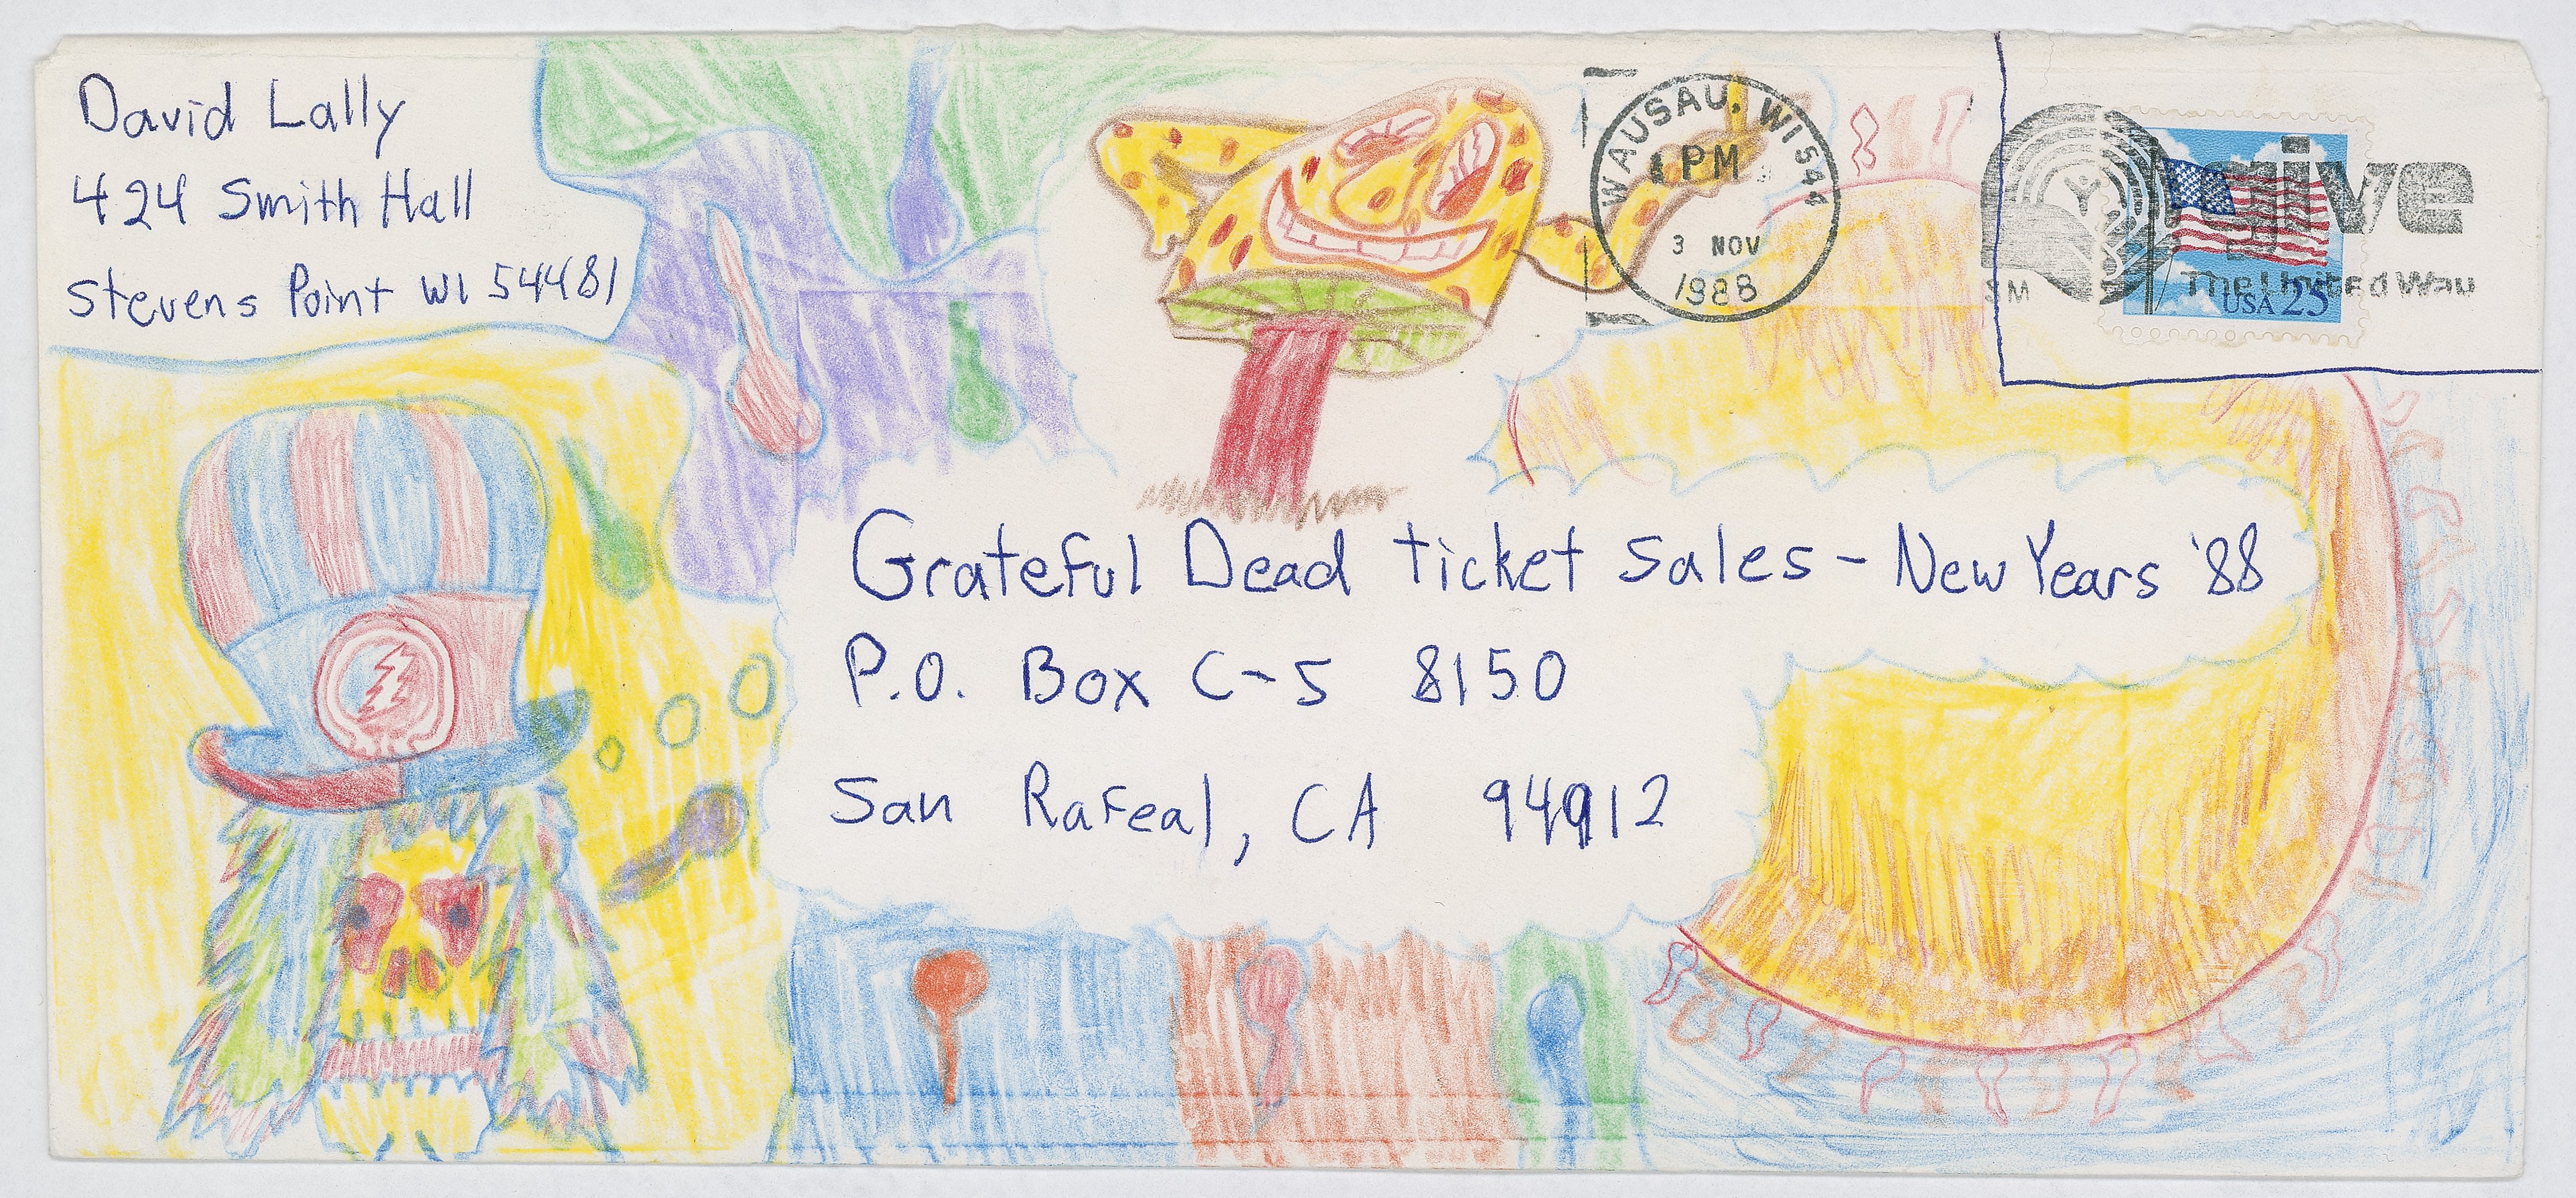 David Lally
424 Smith Hall
Stevens Point WI 54481
WAUSAU, WI 544
PM
3 NOV
1988
give
The United Way
SM
USA 25
Grateful Dead ticket sales - New Years '88
P.O. Box C-S 8150
San Rafeal, CA 94912